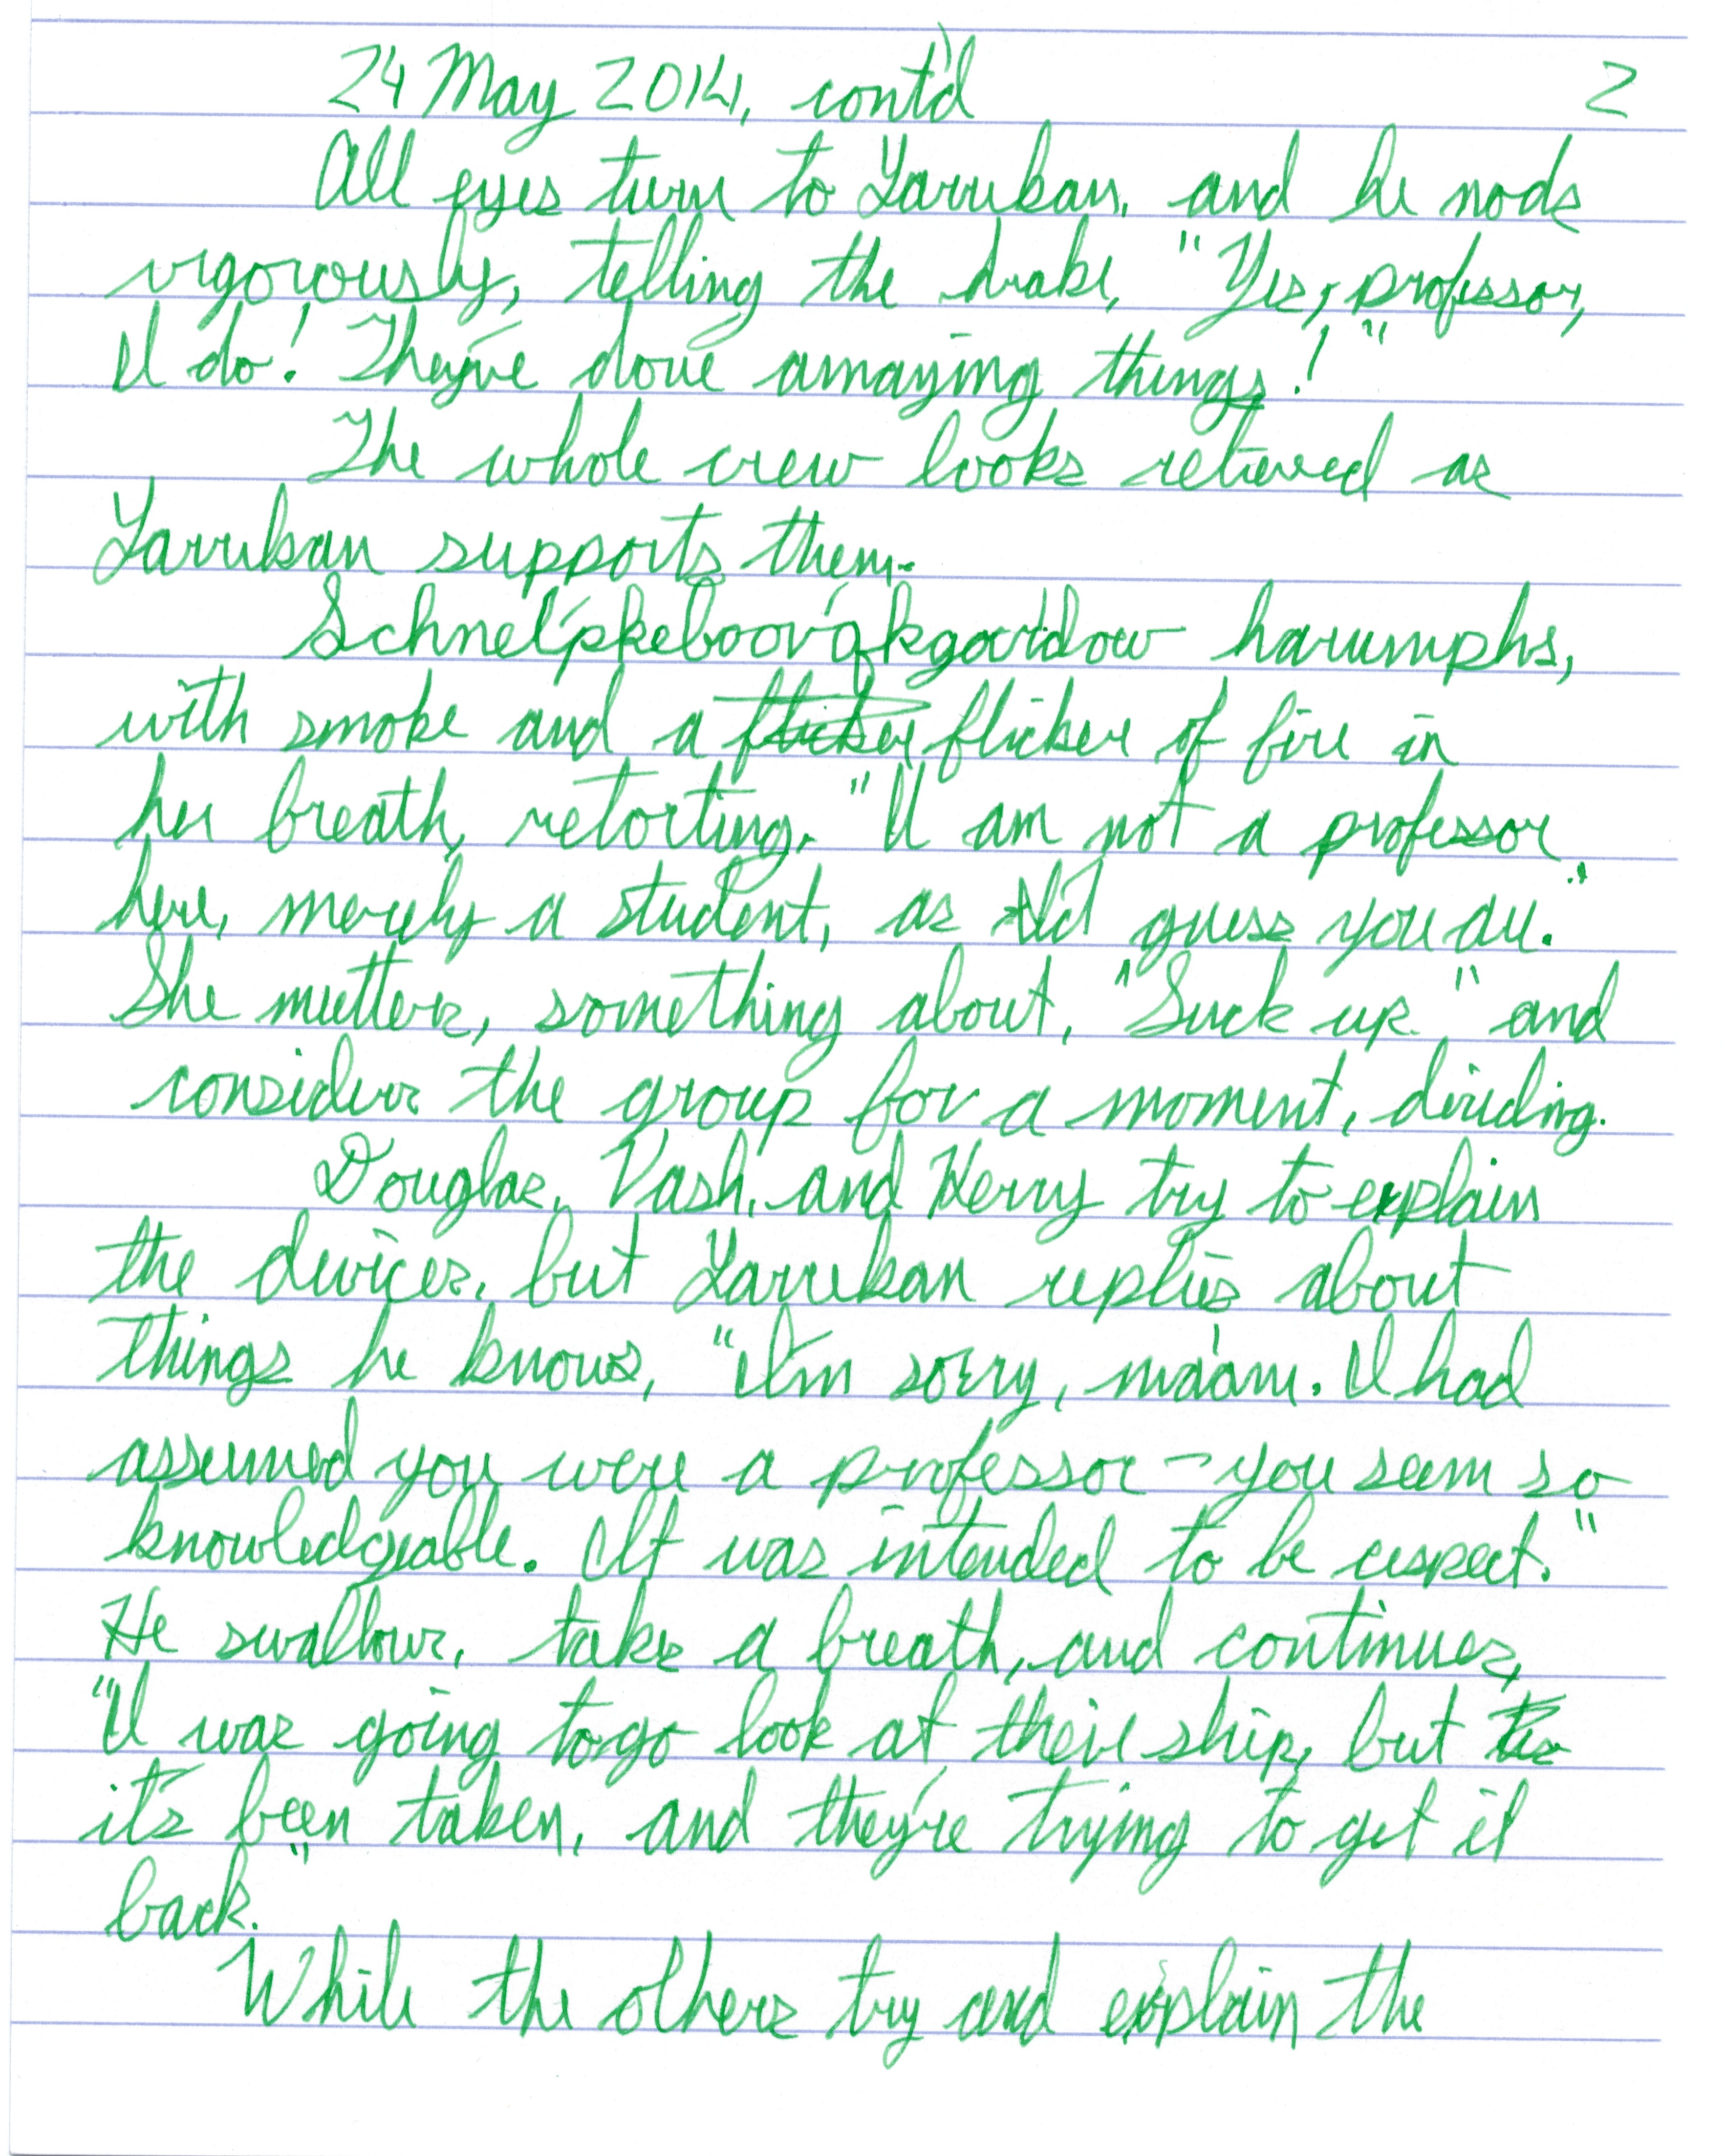 24 May 2014, cont'd 2
All eyes turn to Yarrukan, and he nods
vigorously, telling the drake, "Yes, professor,
I do! They've done amazing things!"
The whole crew looks relieved as
Yarrukan supports them.
Schnel'pkeboov'qkgoord'dow harumphs,
with smoke and a flicker flicker of fire in
her breath, retorting, "I am not a professor
here, merely a student, as I'd guess you are."
She mutters, something about, "Suck up" and
considers the group for a moment, deciding.
Douglas, Vash, and Kerry try to explain
the devices, but Yarrukan replies about
things he knows, "I'm sorry, ma'am. I had
assumed you were a professor – you seem so
knowledgeable. It was intended to be respect."
He swallows, takes a breath, and continues,
"I was going to go look at their ship, but
it's been taken, and they're trying to get it
back."
While the others try and explain the